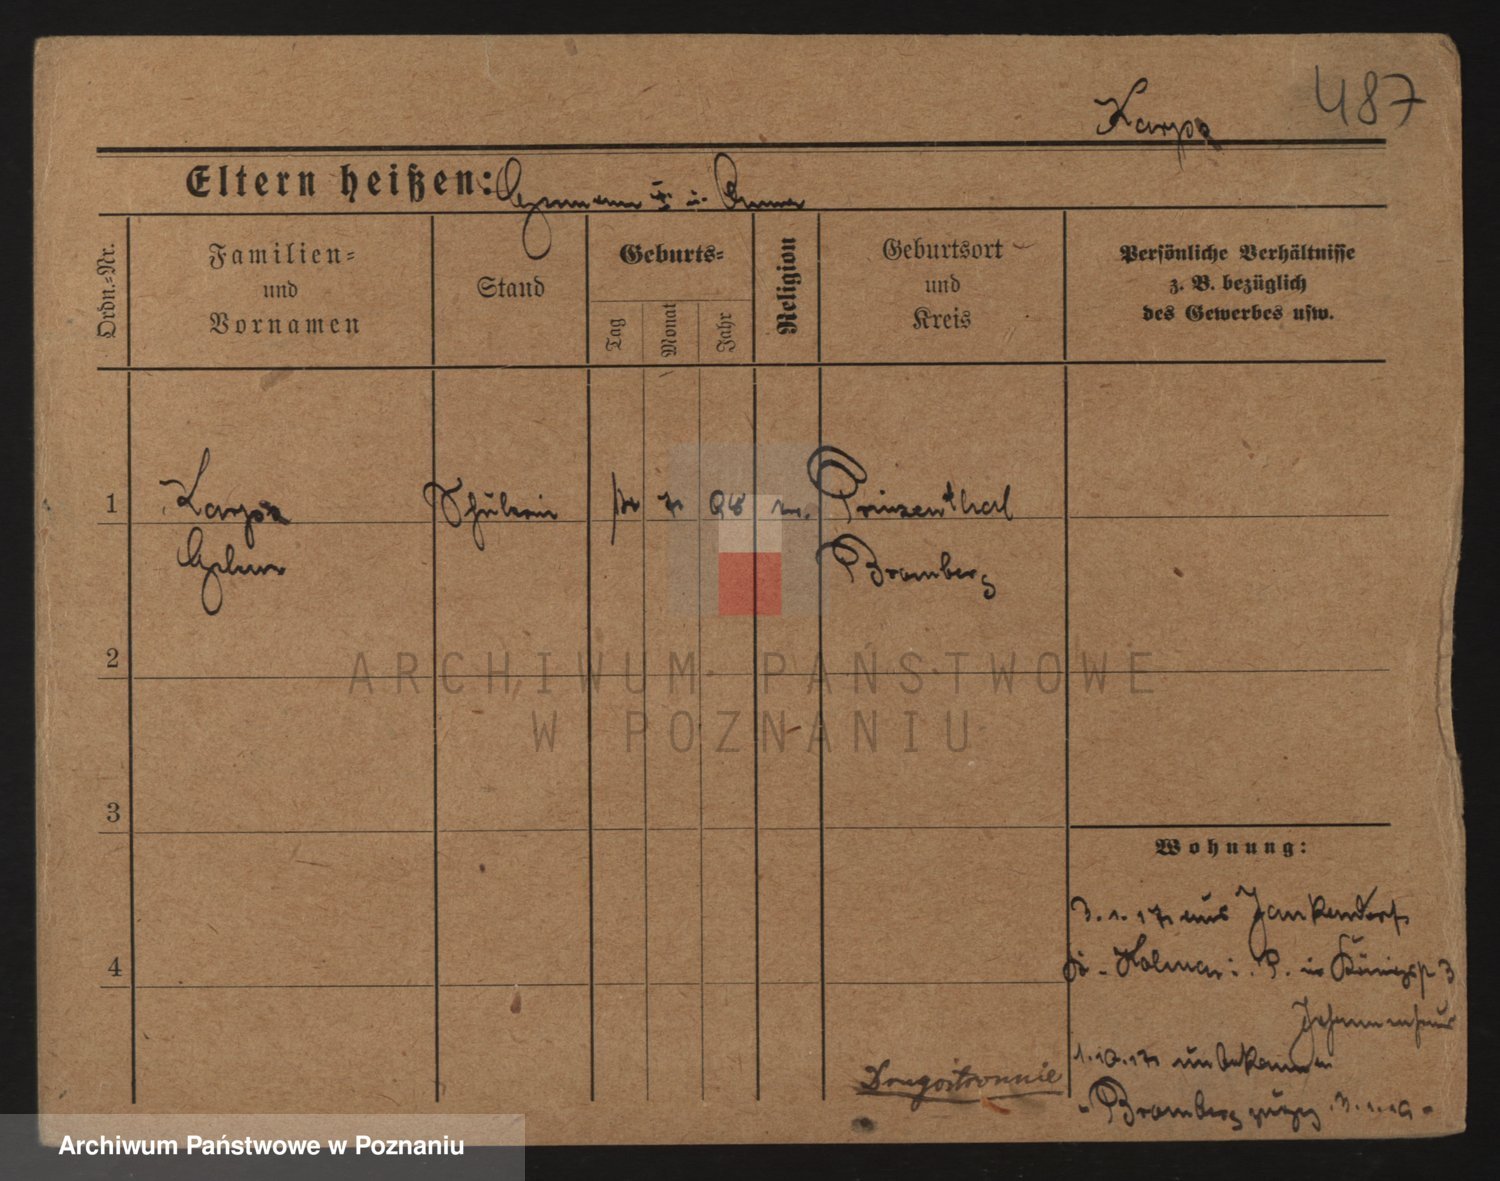 487
Karpa
Eltern heißen: Hermann u. Anna
Ordn.-Nr.
Familien-
und
Vornamen
Stand
Geburts-
Tag
Monat
Jahr
Religion
Geburtsort
und
Kreis
Persönliche Verhältnisse
z. B. bezüglich
des Gewerbes usw.
1
Karpa Schülerin Prinzenthal
Bromberg
2
ARCHIWUM PAŃSTWOWE
W POZNANIU
3
Wohnung:
3.1.17 aus Jankendorf
4
Kr. Kolmar i. P. in
1.10.17 unbekannt
Bromberg 3.1.19
Archiwum Państwowe w Poznaniu